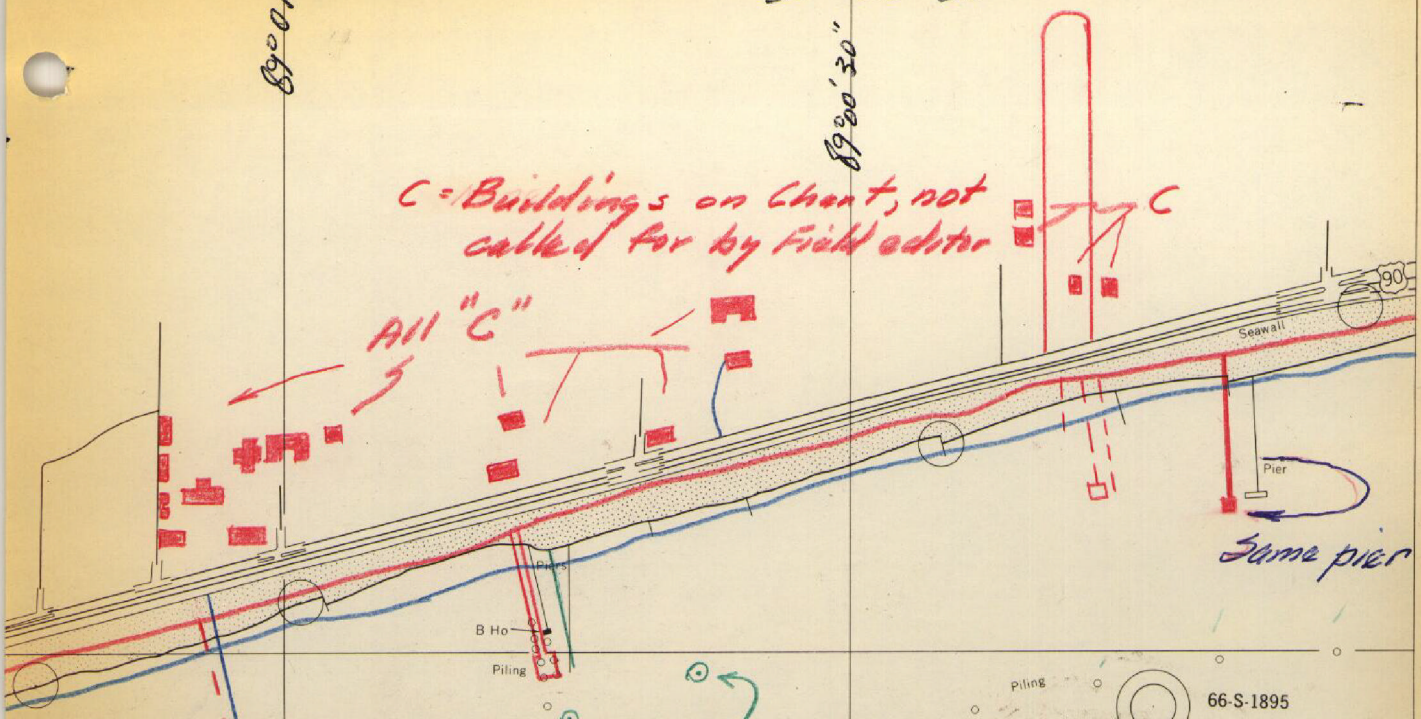 89°01
89°00'30"
C = Buildings on Chart, not
called for by Field editor
C
All "C"
90
Seawall
Pier
Same pier
Piers
B Ho
Piling
Piling
66-S-1895